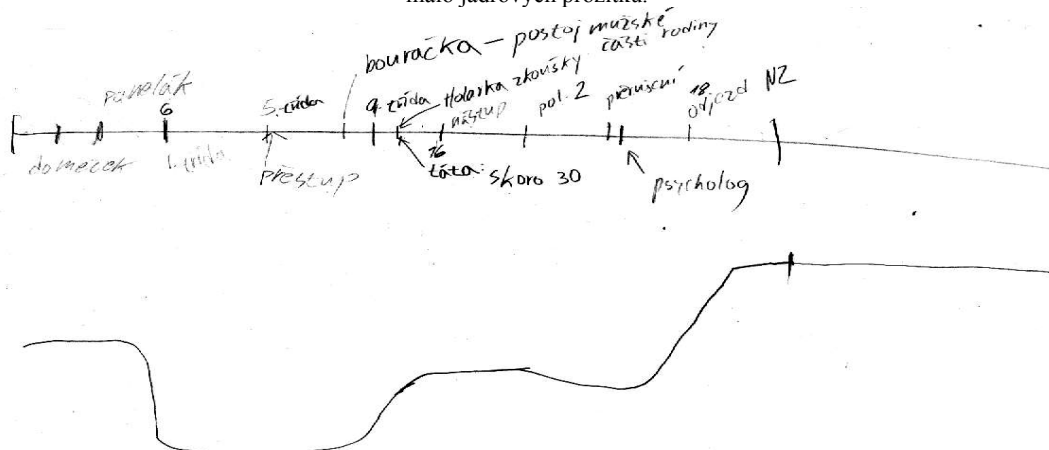 málo jádrových prožitků.
bouračka – postoj mužské
části rodiny
panelák
6
5. třída
9. třída
zkoušky
nástup
pol. 2
18
odjezd NZ
domeček
1. třída
přestup
16
táta: skoro 30
psycholog